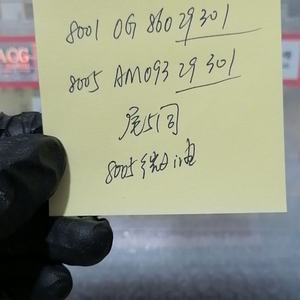 8001 OG 860 29301
8005 AM093 29301
尾5同
8005缺油